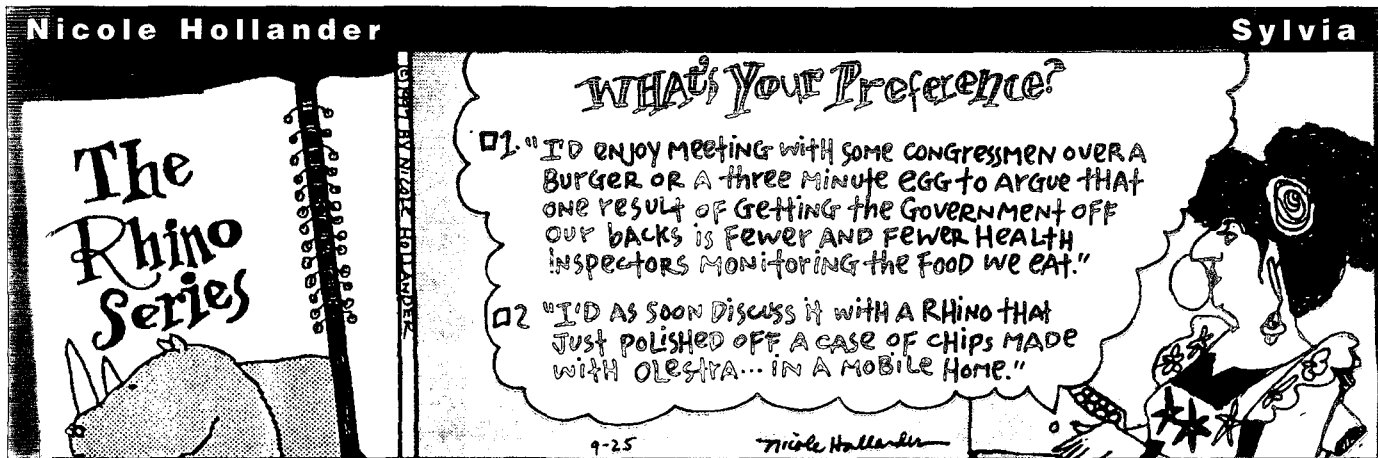 Nicole Hollander
Sylvia
The
Rhino
Series
BY NICOLE HOLLANDER
WHAT'S Your Preference?
1. "I'D ENJOY MEETING WITH SOME CONGRESSMEN OVER A
BURGER OR A THREE MINUTE EGG TO ARGUE THAT
ONE RESULT OF GETTING THE GOVERNMENT OFF
OUR BACKS IS FEWER AND FEWER HEALTH
INSPECTORS MONITORING THE FOOD WE EAT."
2 "I'D AS SOON DISCUSS IT WITH A RHINO THAT
JUST POLISHED OFF A CASE OF CHIPS MADE
WITH OLESTRA... IN A MOBILE HOME."
9-25
Nicole Hollander